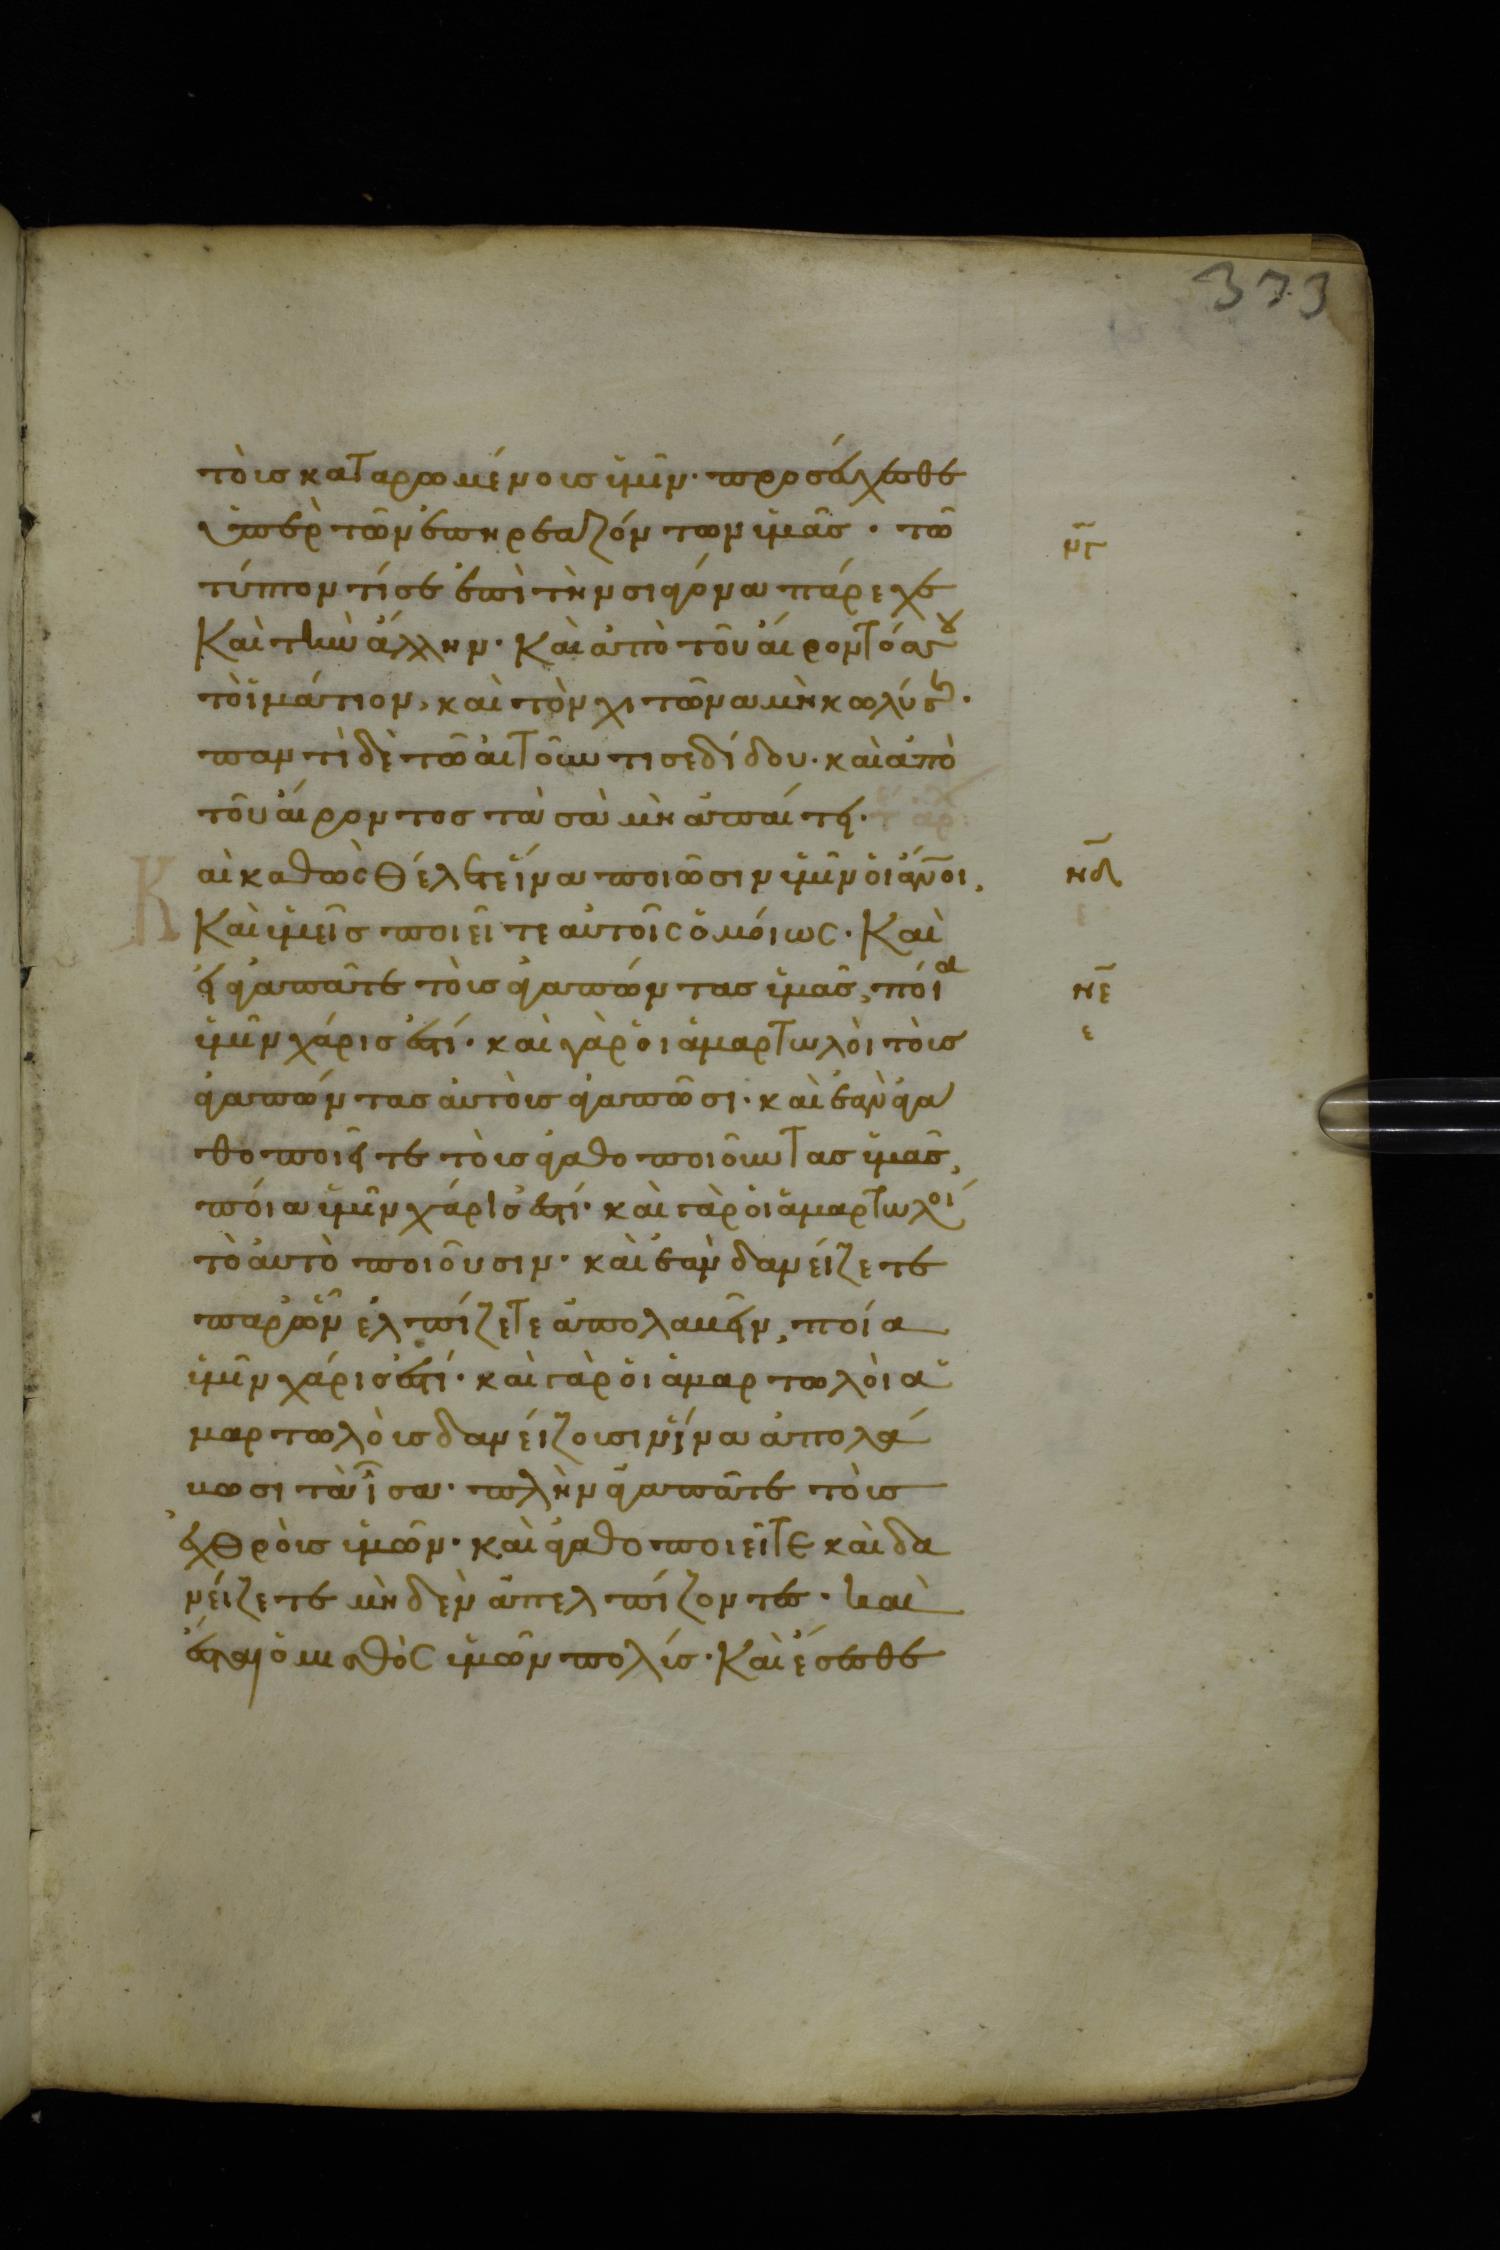 373
τοὶς καταρωμένοις ὑμῖν· προσέυχεσθε
ὑπὲρ τῶν ἐπηρεαζόντων ὑμᾶς· τῶ
τύπτοντί σε ἐπὶ τὴν σιαγόνα πάρεχε
Καὶ τὴν ἄλλην· Καὶ ἀπὸ τοῦ αἴροντός σου
τὸ ἱμάτιον, καὶ τὸν χιτῶνα μὴ κωλύσης·
παντὶ δὲ τῶ αἰτοῦντί σε δίδου· καὶ ἀπὸ
τοῦ αἴροντος τὰ σὰ μὴ ἀπαίτει·
Καὶ καθὼς θέλετε ἵνα ποιῶσιν ὑμῖν οἱ ἄνοι,
Καὶ ὑμεῖς ποιεῖτε αὐτοῖς ὁμοίως· Καὶ
εἰ ἀγαπᾶτε τοὺς ἀγαπῶντας ὑμᾶς, ποία
ὑμῖν χάρις ἐστί· καὶ γὰρ οἱ ἁμαρτωλοὶ τοὺς
ἀγαπῶντας αὐτοὺς ἀγαπῶσι· καὶ ἐὰν ἀγα
θοποιεῖτε τοὺς ἀγαθοποιοῦντας ὑμᾶς,
ποία ὑμῖν χάρις ἐστί· καὶ γὰρ οἱ ἁμαρτωλοί
τὸ αὐτὸ ποιοῦσιν· καὶ ἐὰν δανείζετε
παρ' ὧν ἐλπίζετε ἀπολαβεῖν, ποία
ὑμῖν χάρις ἐστί· καὶ γὰρ οἱ ἁμαρτωλοὶ ἁ
μαρτωλοὶς δανείζουσιν ἵνα ἀπολά
βωσι τὰ ἴσα· πλὴν ἀγαπᾶτε τοὺς
ἐχθροὺς ὑμῶν· καὶ ἀγαθοποιεῖτε καὶ δα
νείζετε μηδὲν ἀπελπίζοντες· καὶ
ἔσται ὁ μισθὸς ὑμῶν πολύς· Καὶ ἔσεσθε
νγ
νδ
νε
ε